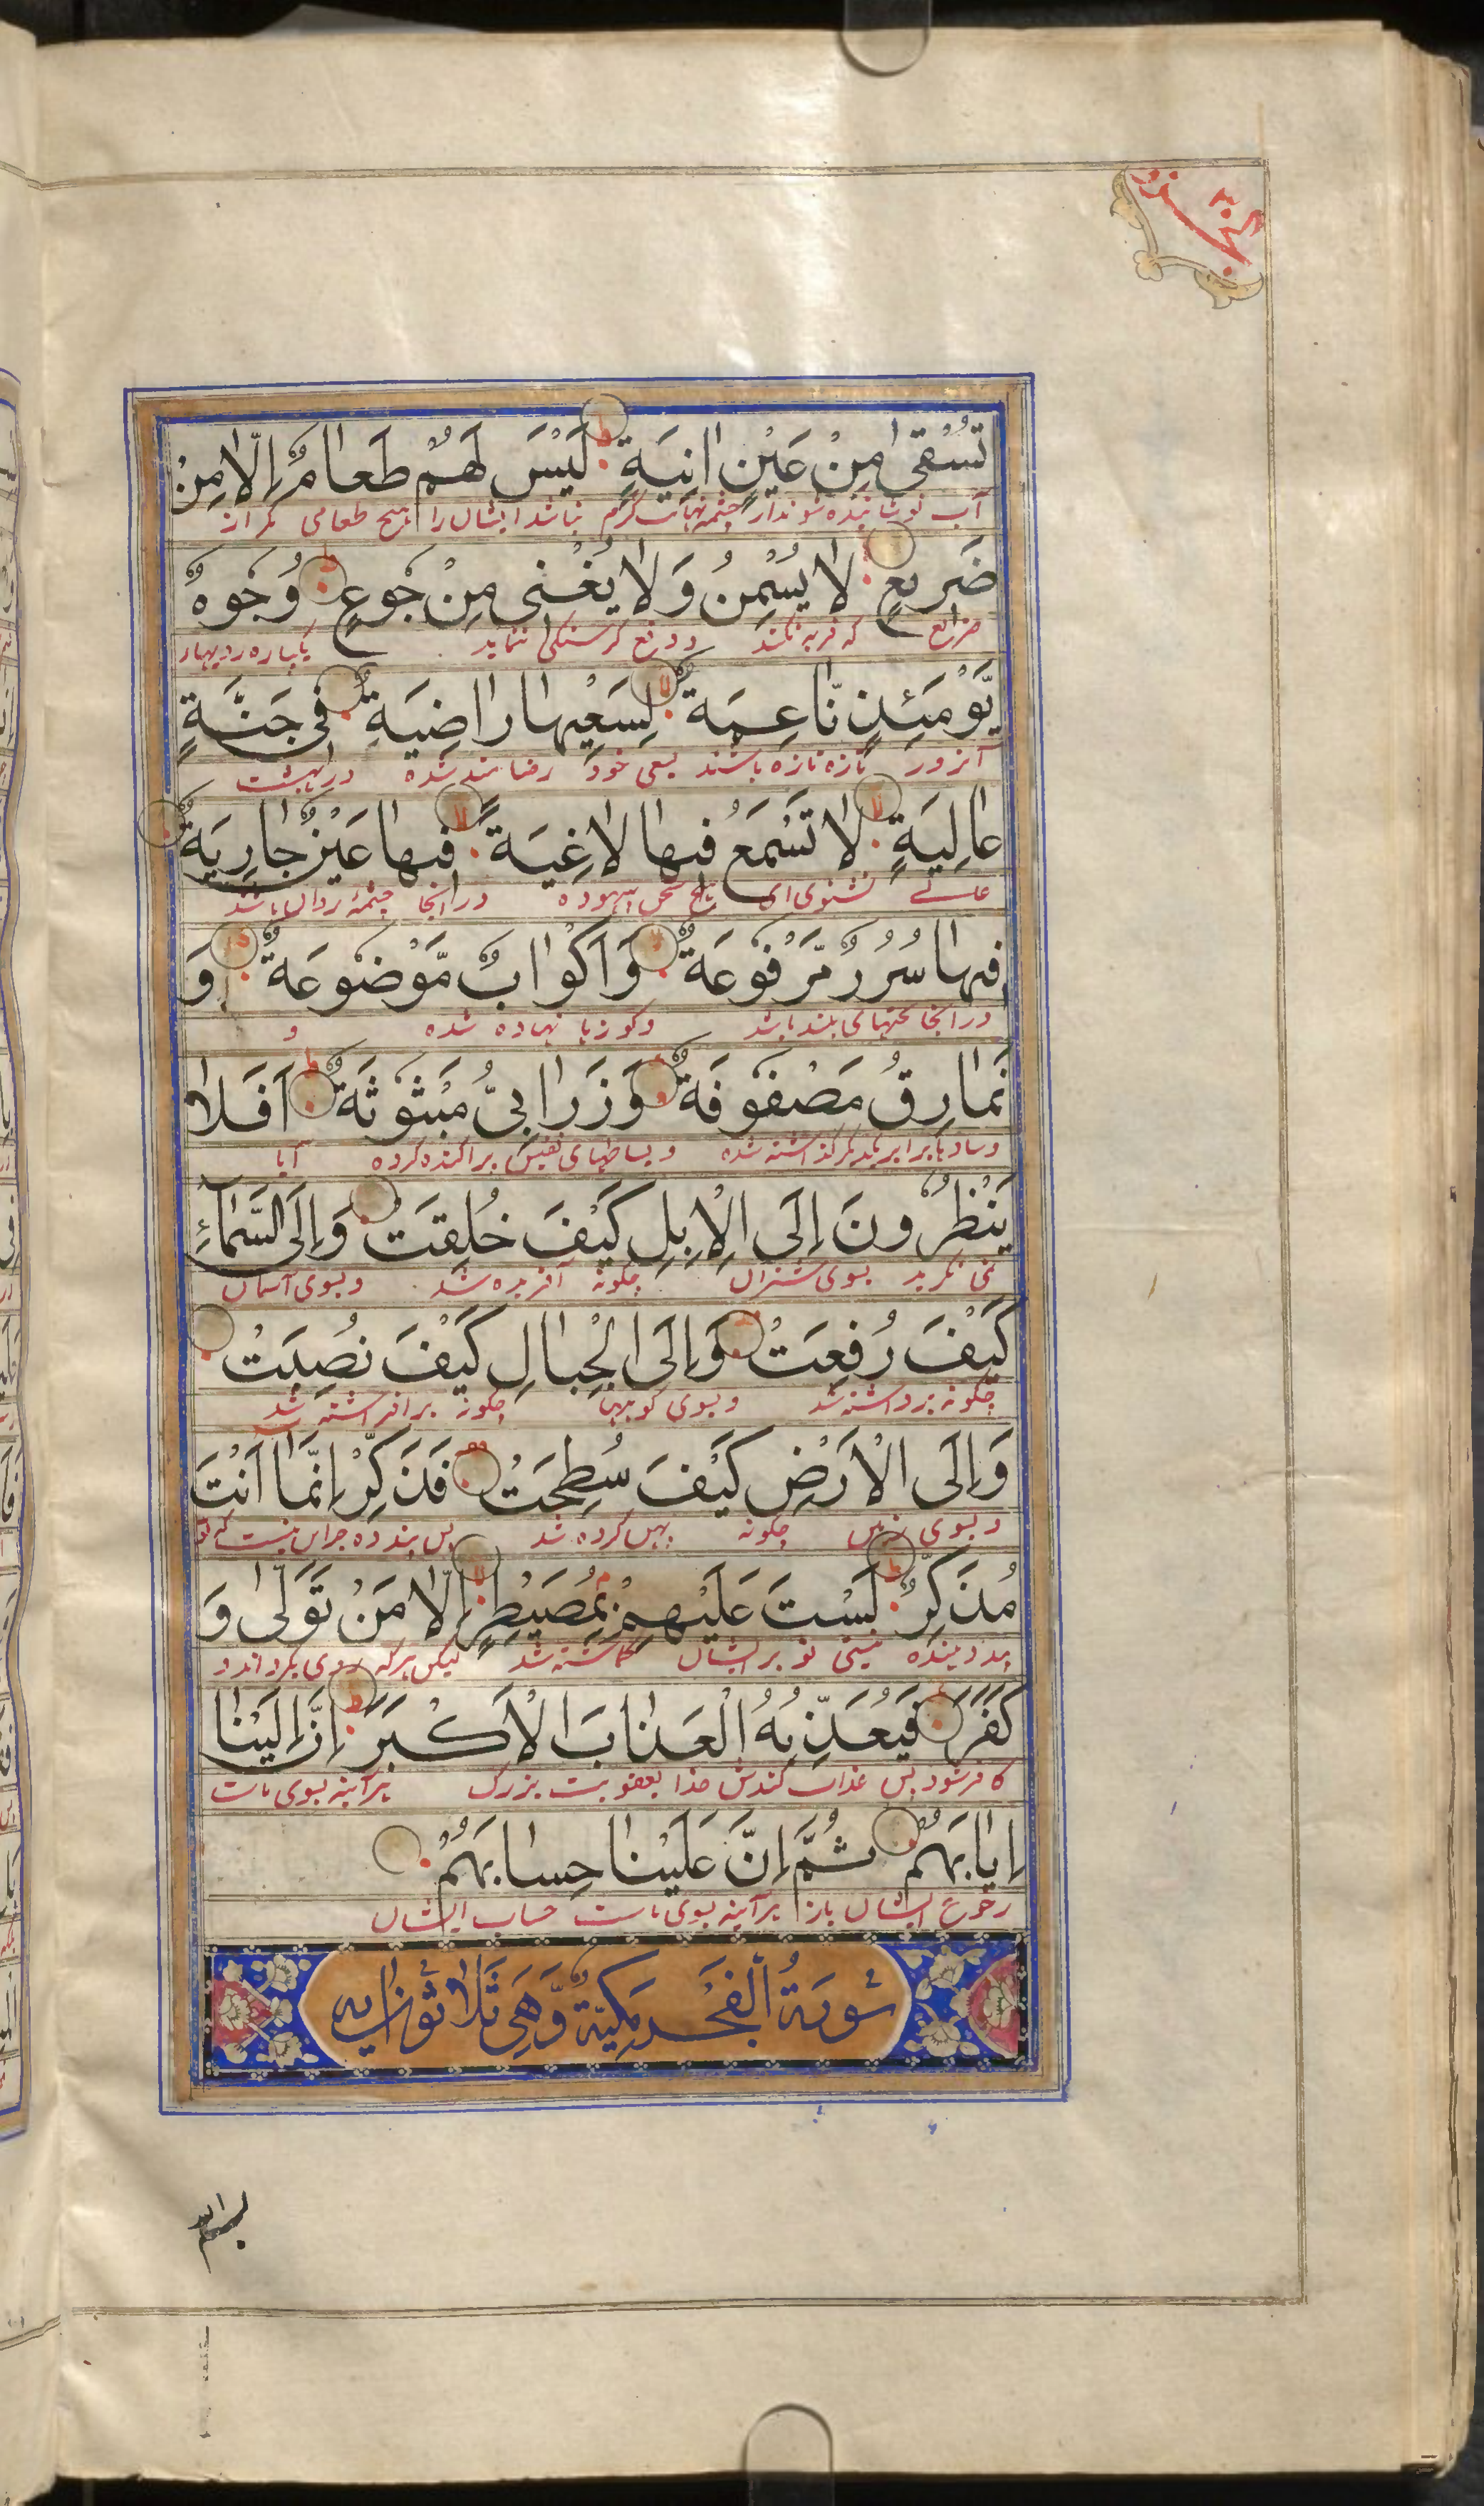 الجزو ٣٠
تُسْقىٰ مِنْ عَيْنٍ اٰنِيَةٍ لَيْسَ لَهُمْ طَعامٌ اِلّا مِنْ
آب نوشانیده شوند از چشمه نهایت گرم نباشد ایشان را هیچ طعامی مگر از
ضَريعٍ لا يُسْمِنُ وَلا يُغْنى مِنْ جُوعٍ وُجُوهٌ
ضریع که فربه نکند و دفع گرسنگی ننماید پاره رویها
يَّوْمَئِذٍ نّاعِمَةٌ لِسَعْيِها راضِيَةٌ فى جَنَّةٍ
آنروز تازه تازه باشند بسعی خود رضامند شده در بهشت
عالِيَةٍ لا تَسْمَعُ فيها لاغِيَةً فيها عَيْنٌ جارِيَةٌ
عالی نشنوی ای هیچ سخن بیهوده در آنجا چشمهٔ روان باشد
فيها سُرُرٌ مَّرْفُوعَةٌ وَاَكْوابٌ مَّوْضُوعَةٌ وَ
در آنجا تختهای بلند باشد و کوزها نهاده شده و
نَمارِقُ مَصْفُوفَةٌ وَزَرابِىُّ مَبْثُوثَةٌ اَفَلا
وسادها برابر یکدیگر گذاشته شده و بساطهای نفیس پراکنده کرده آیا
يَنْظُرُونَ اِلَى الْاِبِلِ كَيْفَ خُلِقَتْ وَاِلَى السَّمآءِ
نمی نگرید بسوی شتران چگونه آفریده شد و بسوی آسمان
كَيْفَ رُفِعَتْ وَاِلَى الْجِبالِ كَيْفَ نُصِبَتْ
چگونه برداشته شد و بسوی کوهها چگونه برافراشته شد
وَاِلَى الْاَرْضِ كَيْفَ سُطِحَتْ فَذَكِّرْ اِنَّمآ اَنْتَ
و بسوی زمین چگونه پهن کرده شد پس پند ده جز این نیست که تو
مُذَكِّرٌ لَسْتَ عَلَيْهِمْ بِمُصَيْطِرٍ اِلّا مَنْ تَوَلّىٰ وَ
پند دهنده نیستی تو بر ایشان گماشته شد لیکن هرکه روی بگرداند و
كَفَرَ فَيُعَذِّبُهُ الْعَذابَ الْاَكْبَرَ اِنَّ اِلَيْنا
کافر شود پس عذاب کندش خدا بعقوبت بزرگ هرآینه بسوی ماست
اِيابَهُمْ ثُمَّ اِنَّ عَلَيْنا حِسابَهُمْ
رجوع ایشان باز هرآینه بسوی ماست حساب ایشان
سُورَةُ الْفَجْرِ مَكِّيَّةٌ وَّهِىَ ثَلاثُونَ اٰيه
بسم